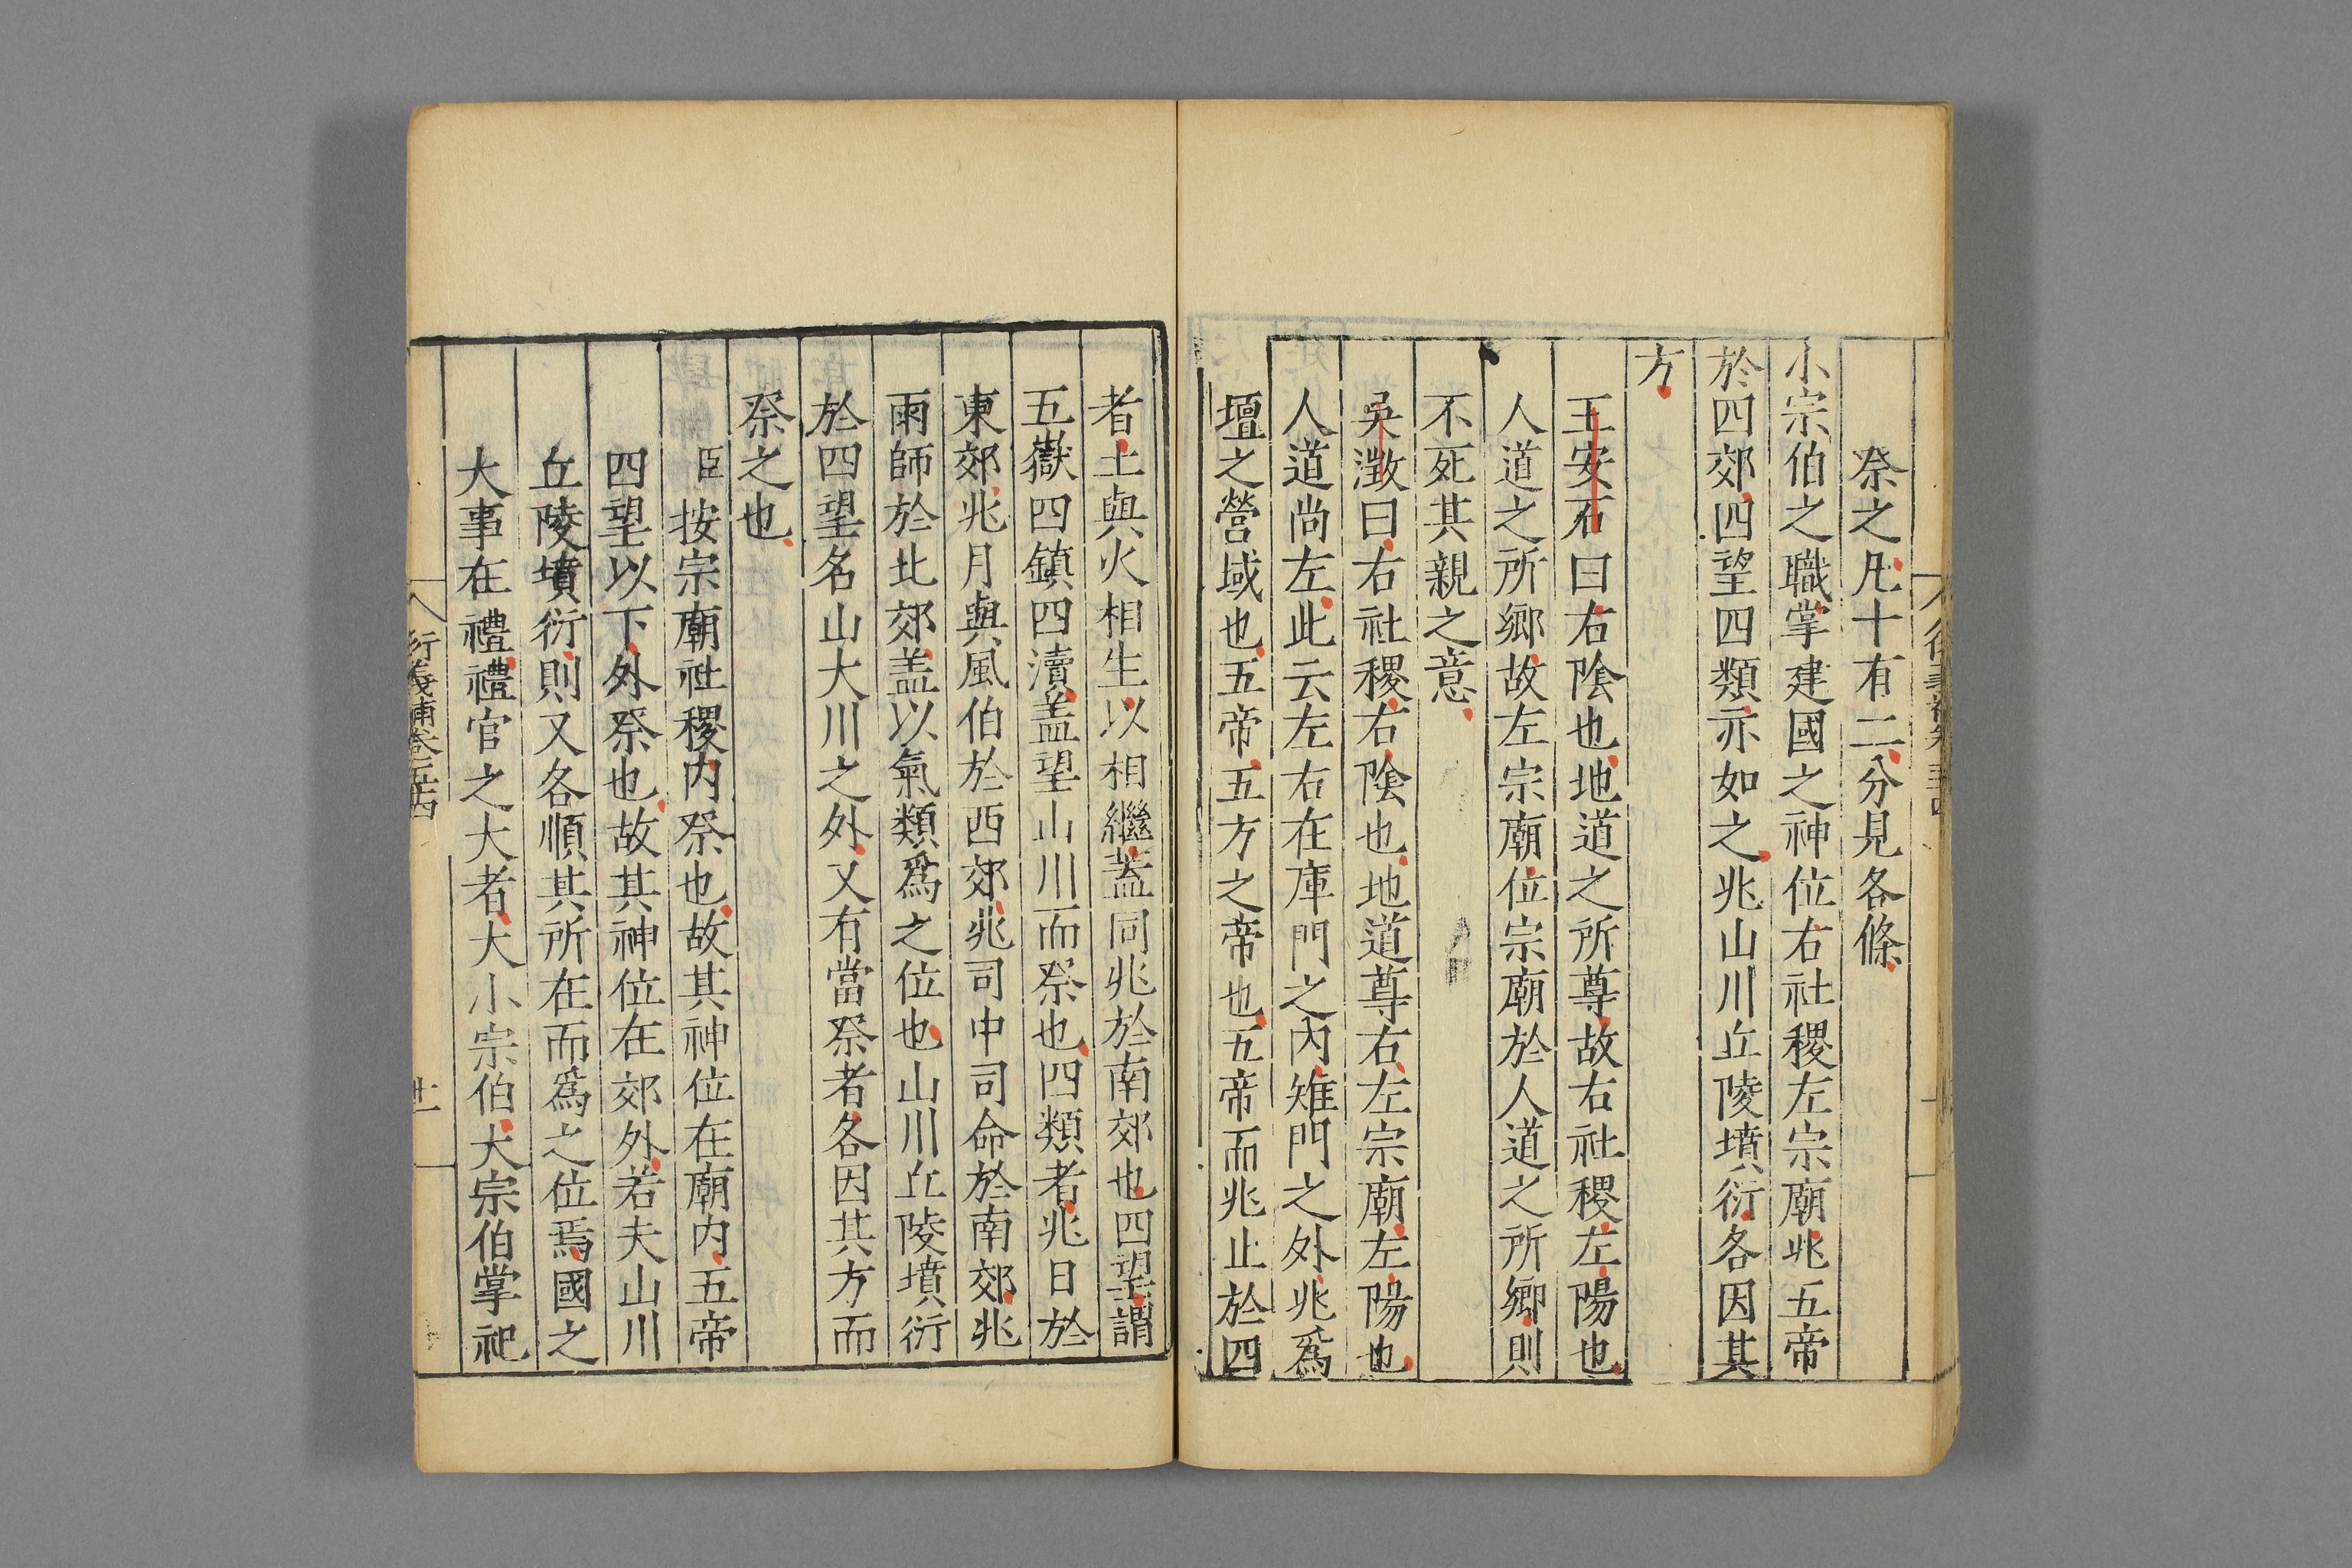 祭之凡十有二分見各條
小宗伯之職掌建國之神位右社稷左宗廟兆五帝
於四郊四望四類亦如之兆山川丘陵墳衍各因其
方
王安石曰右陰也地道之所尊故右社稷左陽也
人道之所鄉故左宗廟位宗廟於人道之所鄉則
不死其親之意
吳澂曰右社稷右陰也地道尊右左宗廟左陽也
人道尚左此云左右在庫門之內雉門之外兆爲
壇之營域也五帝五方之帝也五帝而兆止於四
者土與火相生以相繼蓋同兆於南郊也四望謂
五嶽四鎮四瀆盖望山川而祭也四類者兆日於
東郊兆月與風伯於西郊兆司中司命於南郊兆
雨師於北郊盖以氣類爲之位也山川丘陵墳衍
於四望名山大川之外又有當祭者各因其方而
祭之也
臣按宗廟社稷内祭也故其神位在廟内五帝
四望以下外祭也故其神位在郊外若夫山川
丘陵墳衍則又各順其所在而爲之位焉國之
大事在禮禮官之大者大小宗伯大宗伯掌祀
衍義補卷五十四